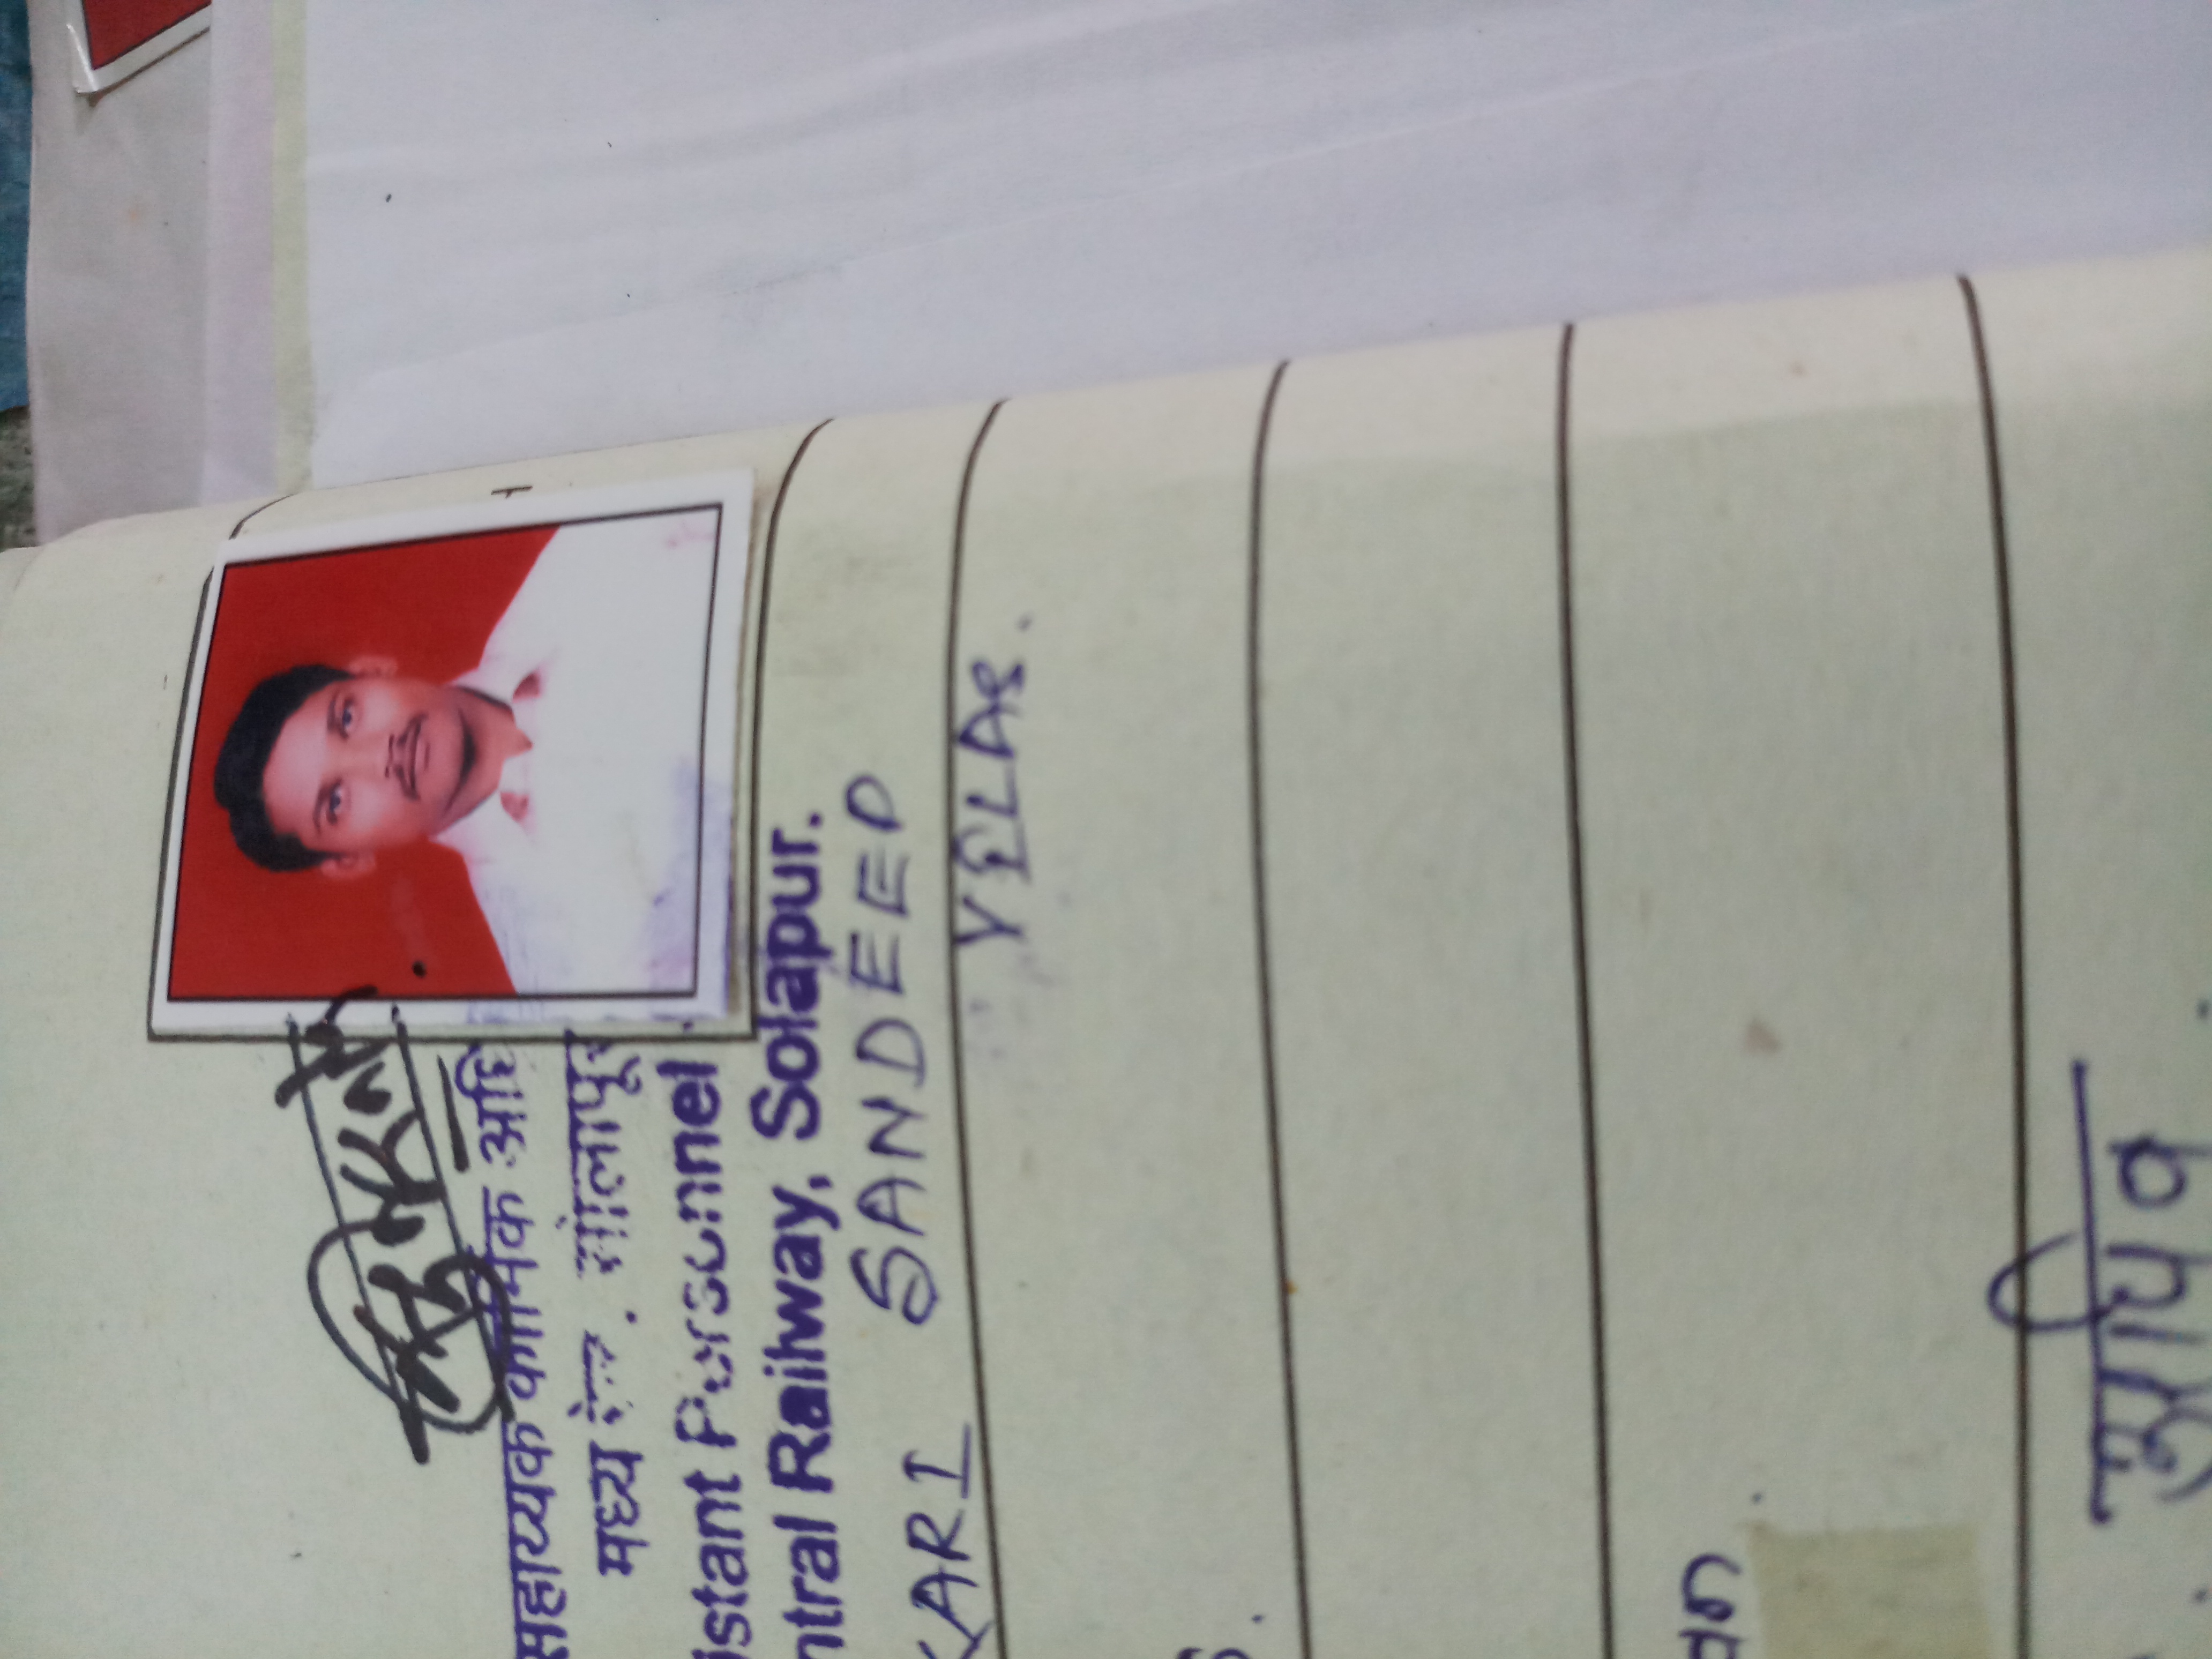 सहाय्यक कार्मिक अधि
मध्य रेल. सोलापूर
istant Personnel
ntral Railway, Solapur.
KARI SANDEEP
VILAS.
S.
वन.
आपिव